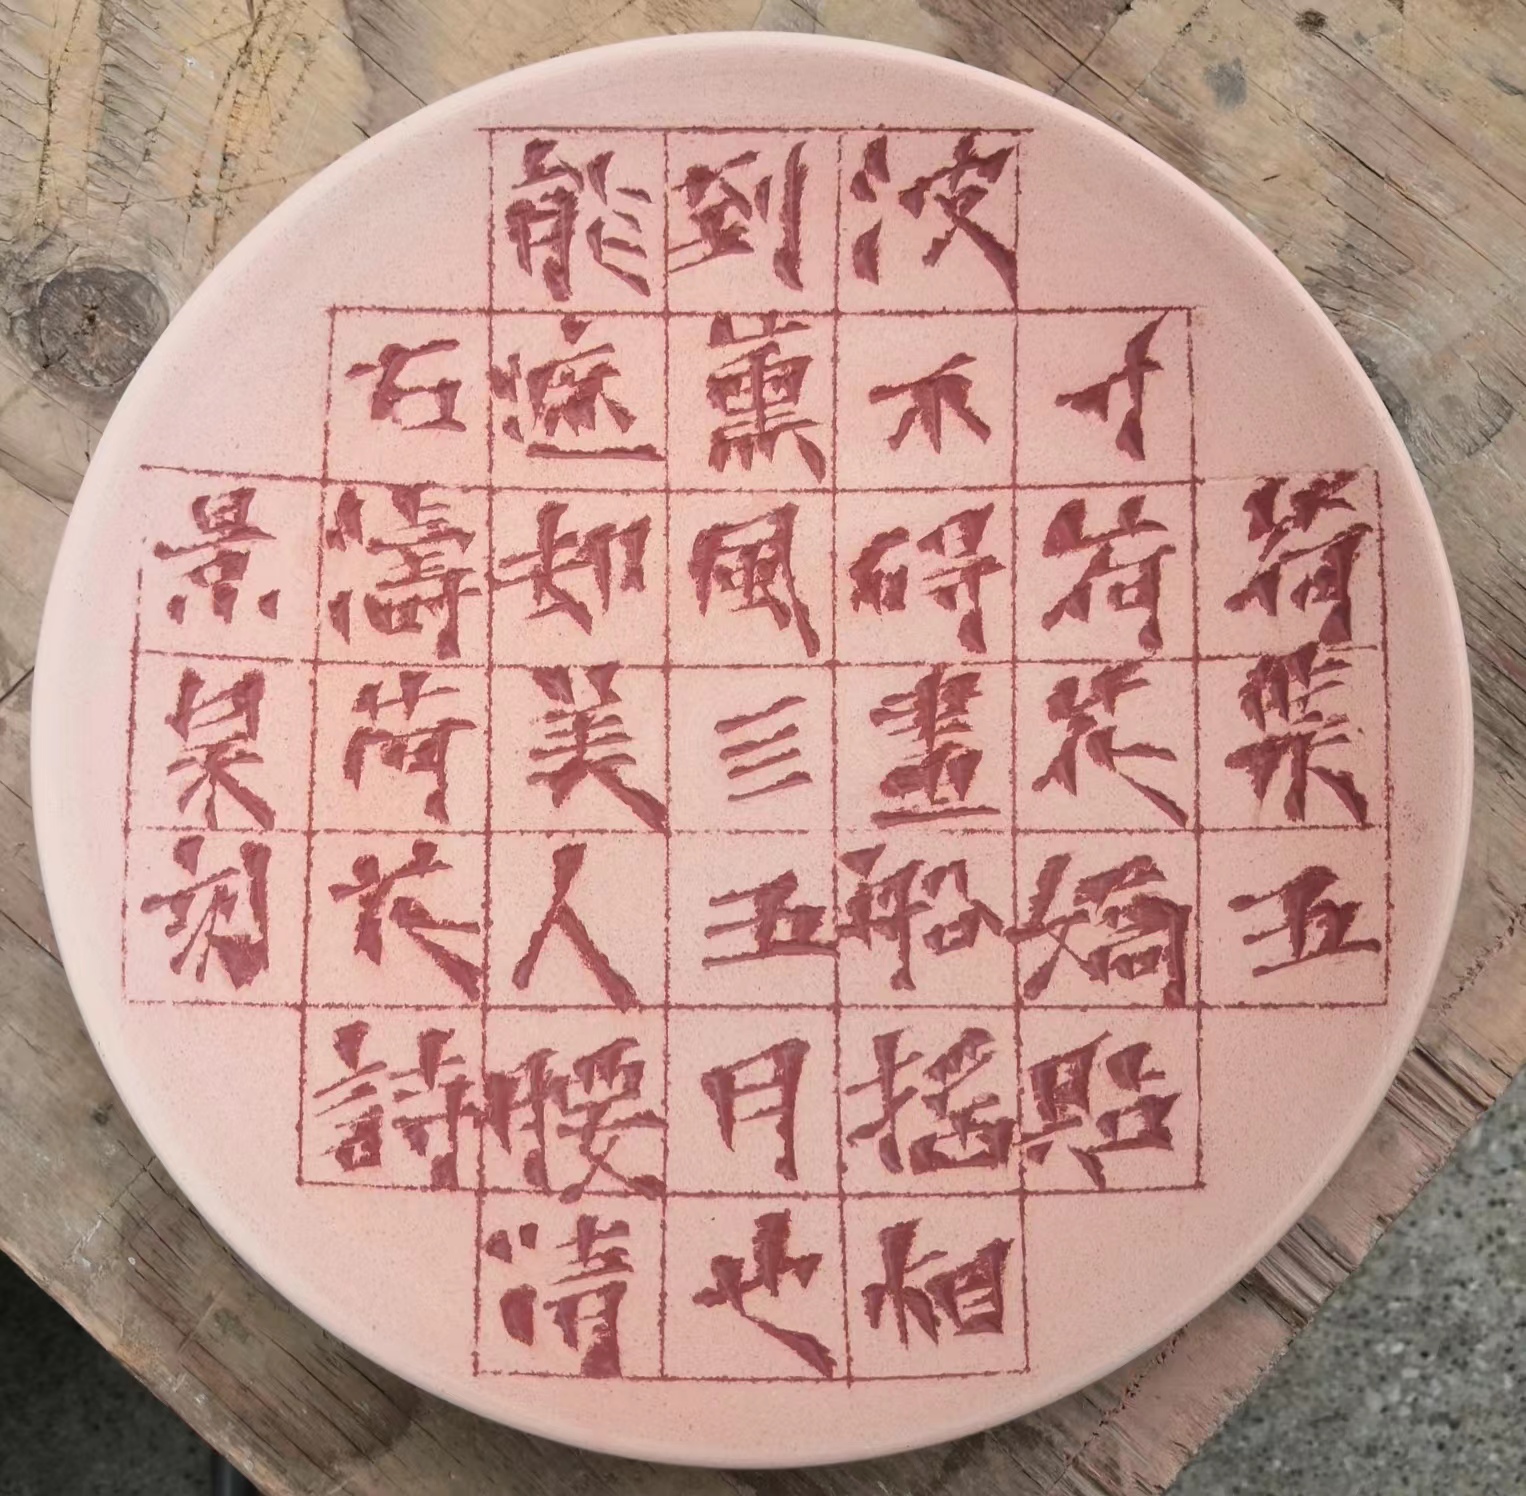 荷葉五
寸荷花嬌貼
波不碍畫船搖相
到薰風亖五月也
能遮却美人腰清
石濤荷花詩
景刻